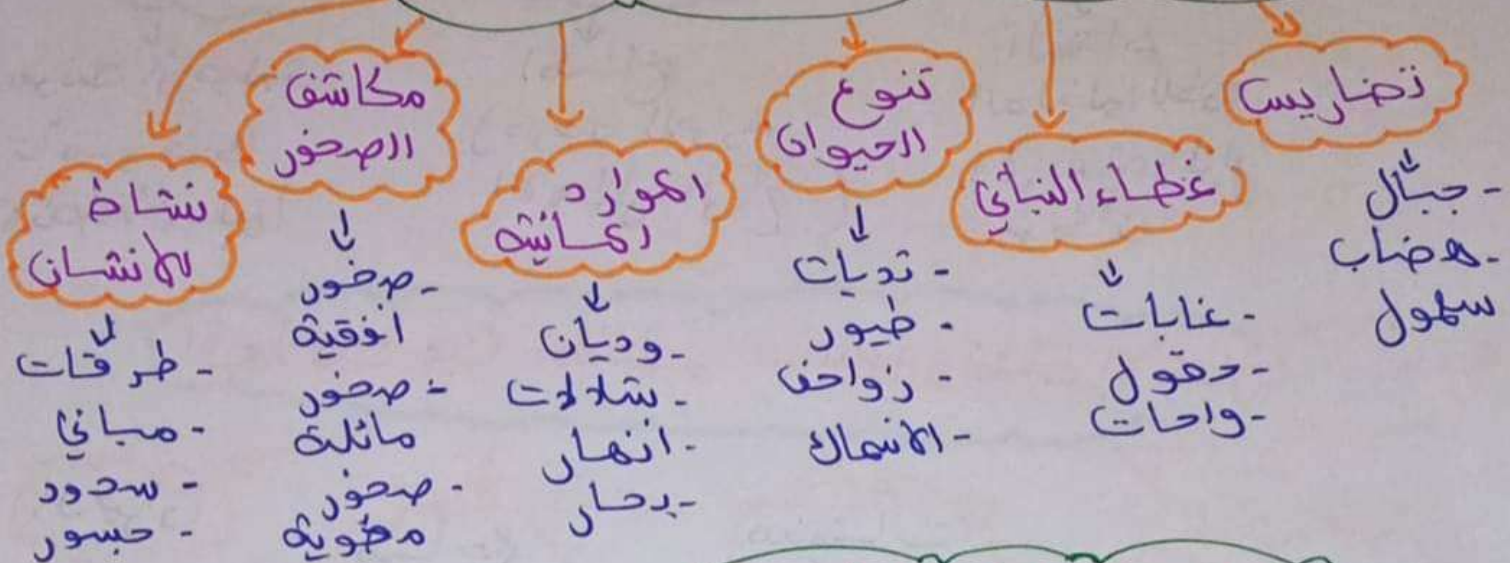 تضاريس
- جبال
- هضاب
سهول
غطاء النباتي
- غابات
- حقول
- واحات
تنوع
الحيوان
- ثديات
- طيور
- زواحف
- الأسماك
الموارد
المائية
- وديان
- شلالات
- انهار
- بحار
مكاشف
الصخور
- صخور
افقية
- صخور
مائلة
- صخور
مطوية
نشاط
الانسان
- طرقات
- مباني
- سدود
- جسور